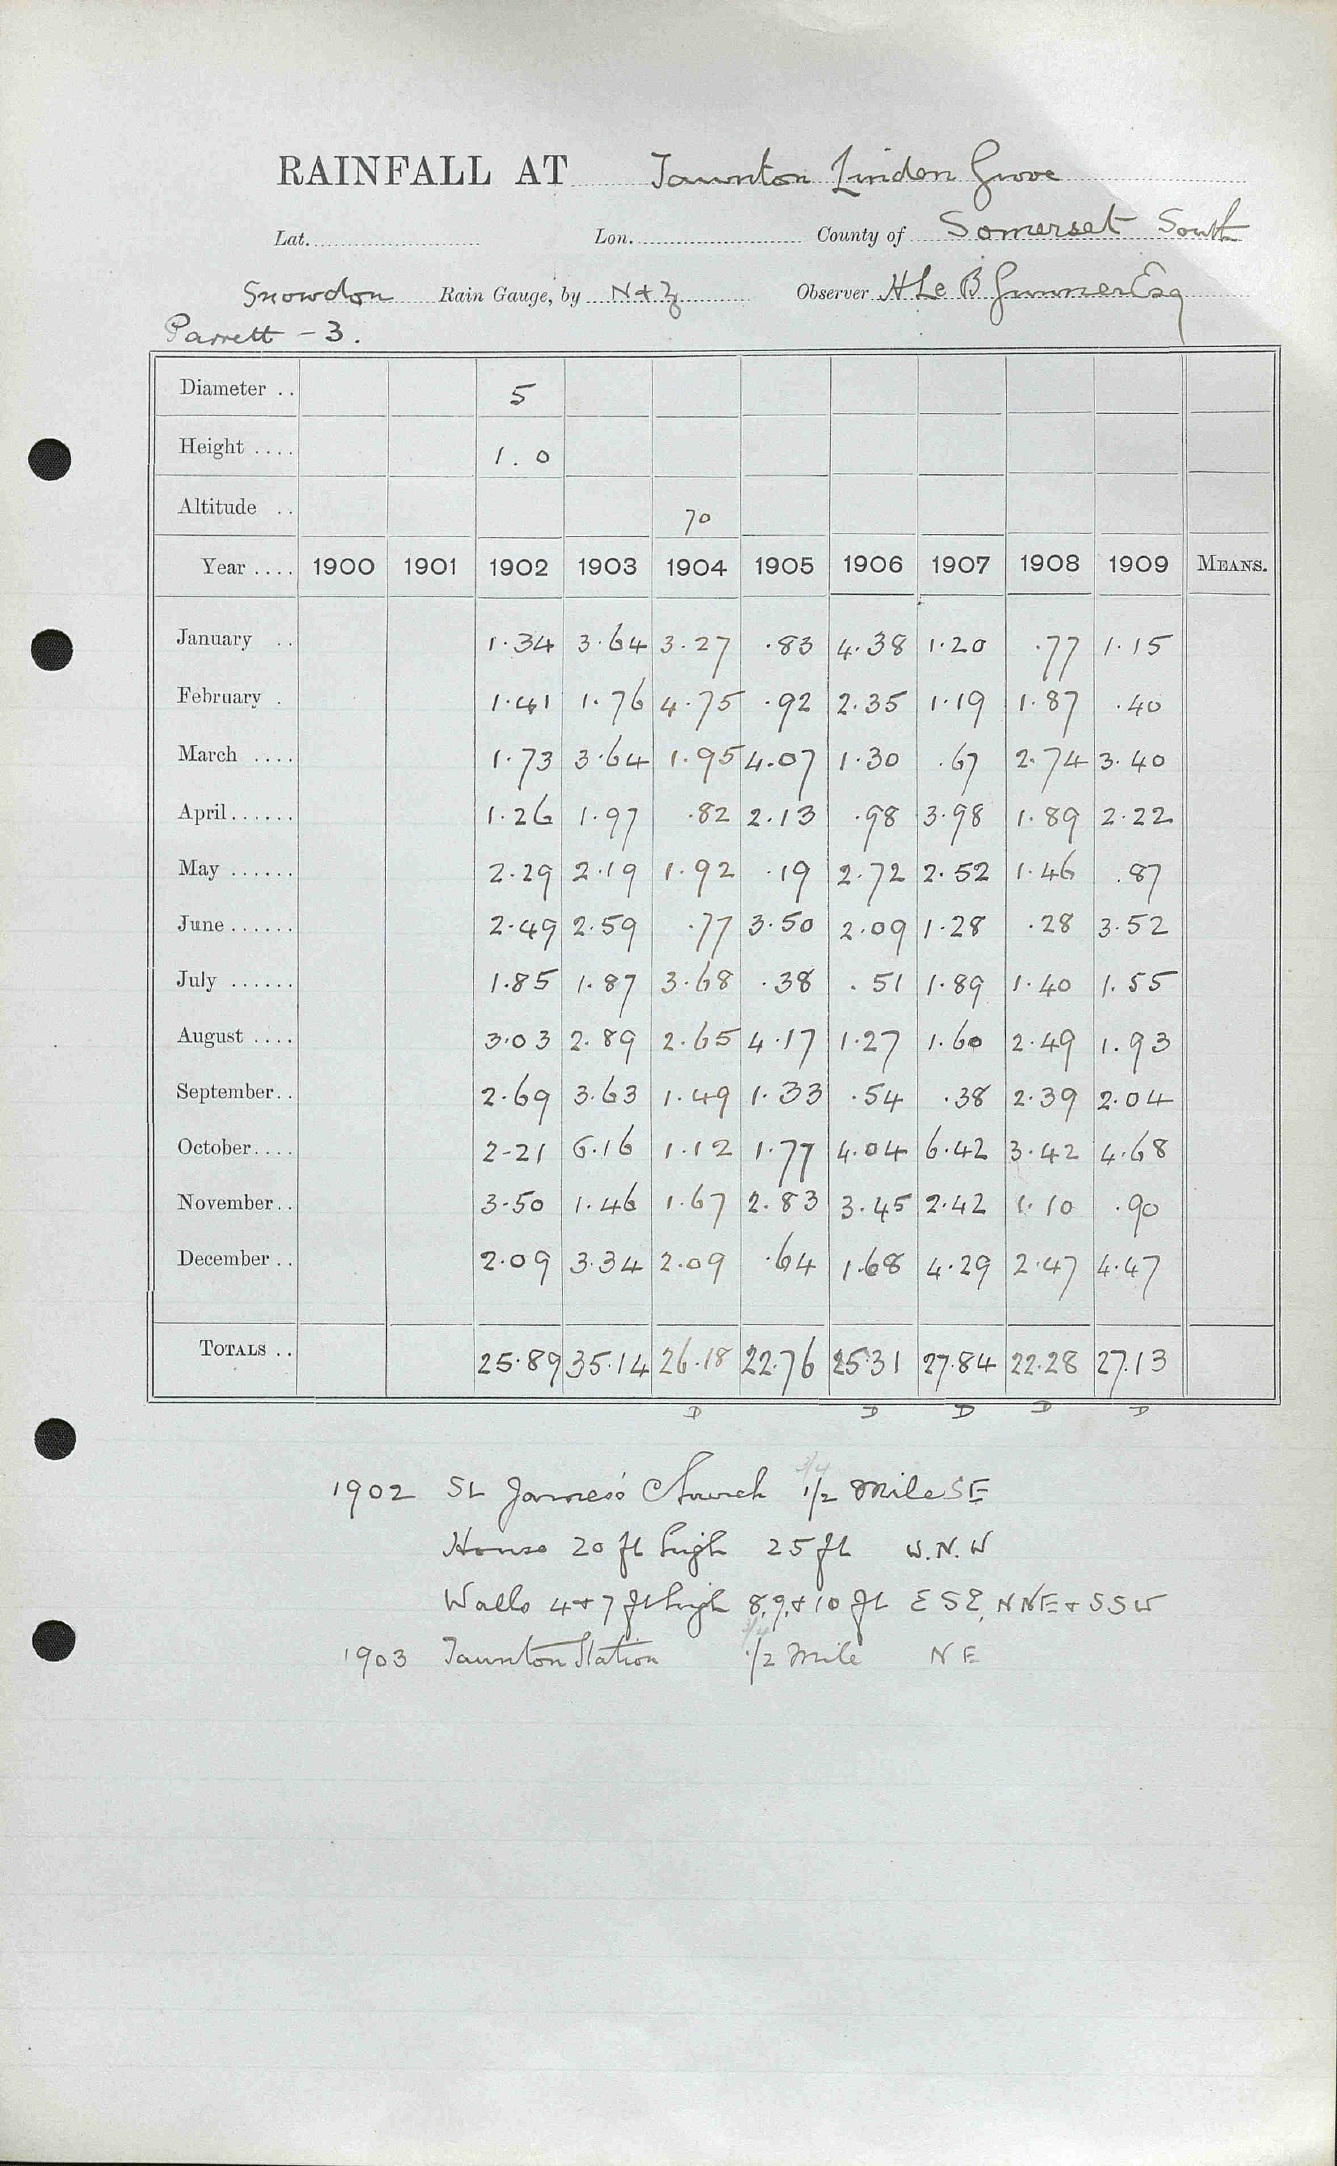 RAINFALL AT Taunton Linden Grove
Lat. Lon. County of Somerset South
Snowdon Rain Gauge, by N & Z Observer H Le B Gunner Esq
Parrett - 3.
Diameter .. 5
Height .... 1.0
Altitude .. 70
Year .... 1900 1901 1902 1903 1904 1905 1906 1907 1908 1909 MEANS.
January .. 1.34 3.64 3.27 .83 4.38 1.20 .77 1.15
February . 1.41 1.76 4.75 .92 2.35 1.19 1.87 .40
March .... 1.73 3.64 1.95 4.07 1.30 .67 2.74 3.40
April...... 1.26 1.97 .82 2.13 .98 3.98 1.89 2.22
May ...... 2.29 2.19 1.92 .19 2.72 2.52 1.46 .87
June ...... 2.49 2.59 .77 3.50 2.09 1.28 .28 3.52
July ...... 1.85 1.87 3.68 .38 .51 1.89 1.40 1.55
August .... 3.03 2.89 2.65 4.17 1.27 1.60 2.49 1.93
September.. 2.69 3.63 1.49 1.33 .54 .38 2.39 2.04
October.... 2-21 6.16 1.12 1.77 4.04 6.42 3.42 4.68
November.. 3-50 1.46 1.67 2.83 3.45 2.42 1.10 .90
December .. 2.09 3.34 2.09 .64 1.68 4.29 2.47 4.47
TOTALS .. 25.89 35.14 26.18 22.76 25.31 27.84 22.28 27.13
D D D D D
1902 St James's Church 1/2 Mile SE
House 20 ft high 25 ft W.N.W
Walls 4 & 7 ft high 8, 9, & 10 ft ESE, NNE & SSW
1903 Taunton Station 1/2 Mile NE